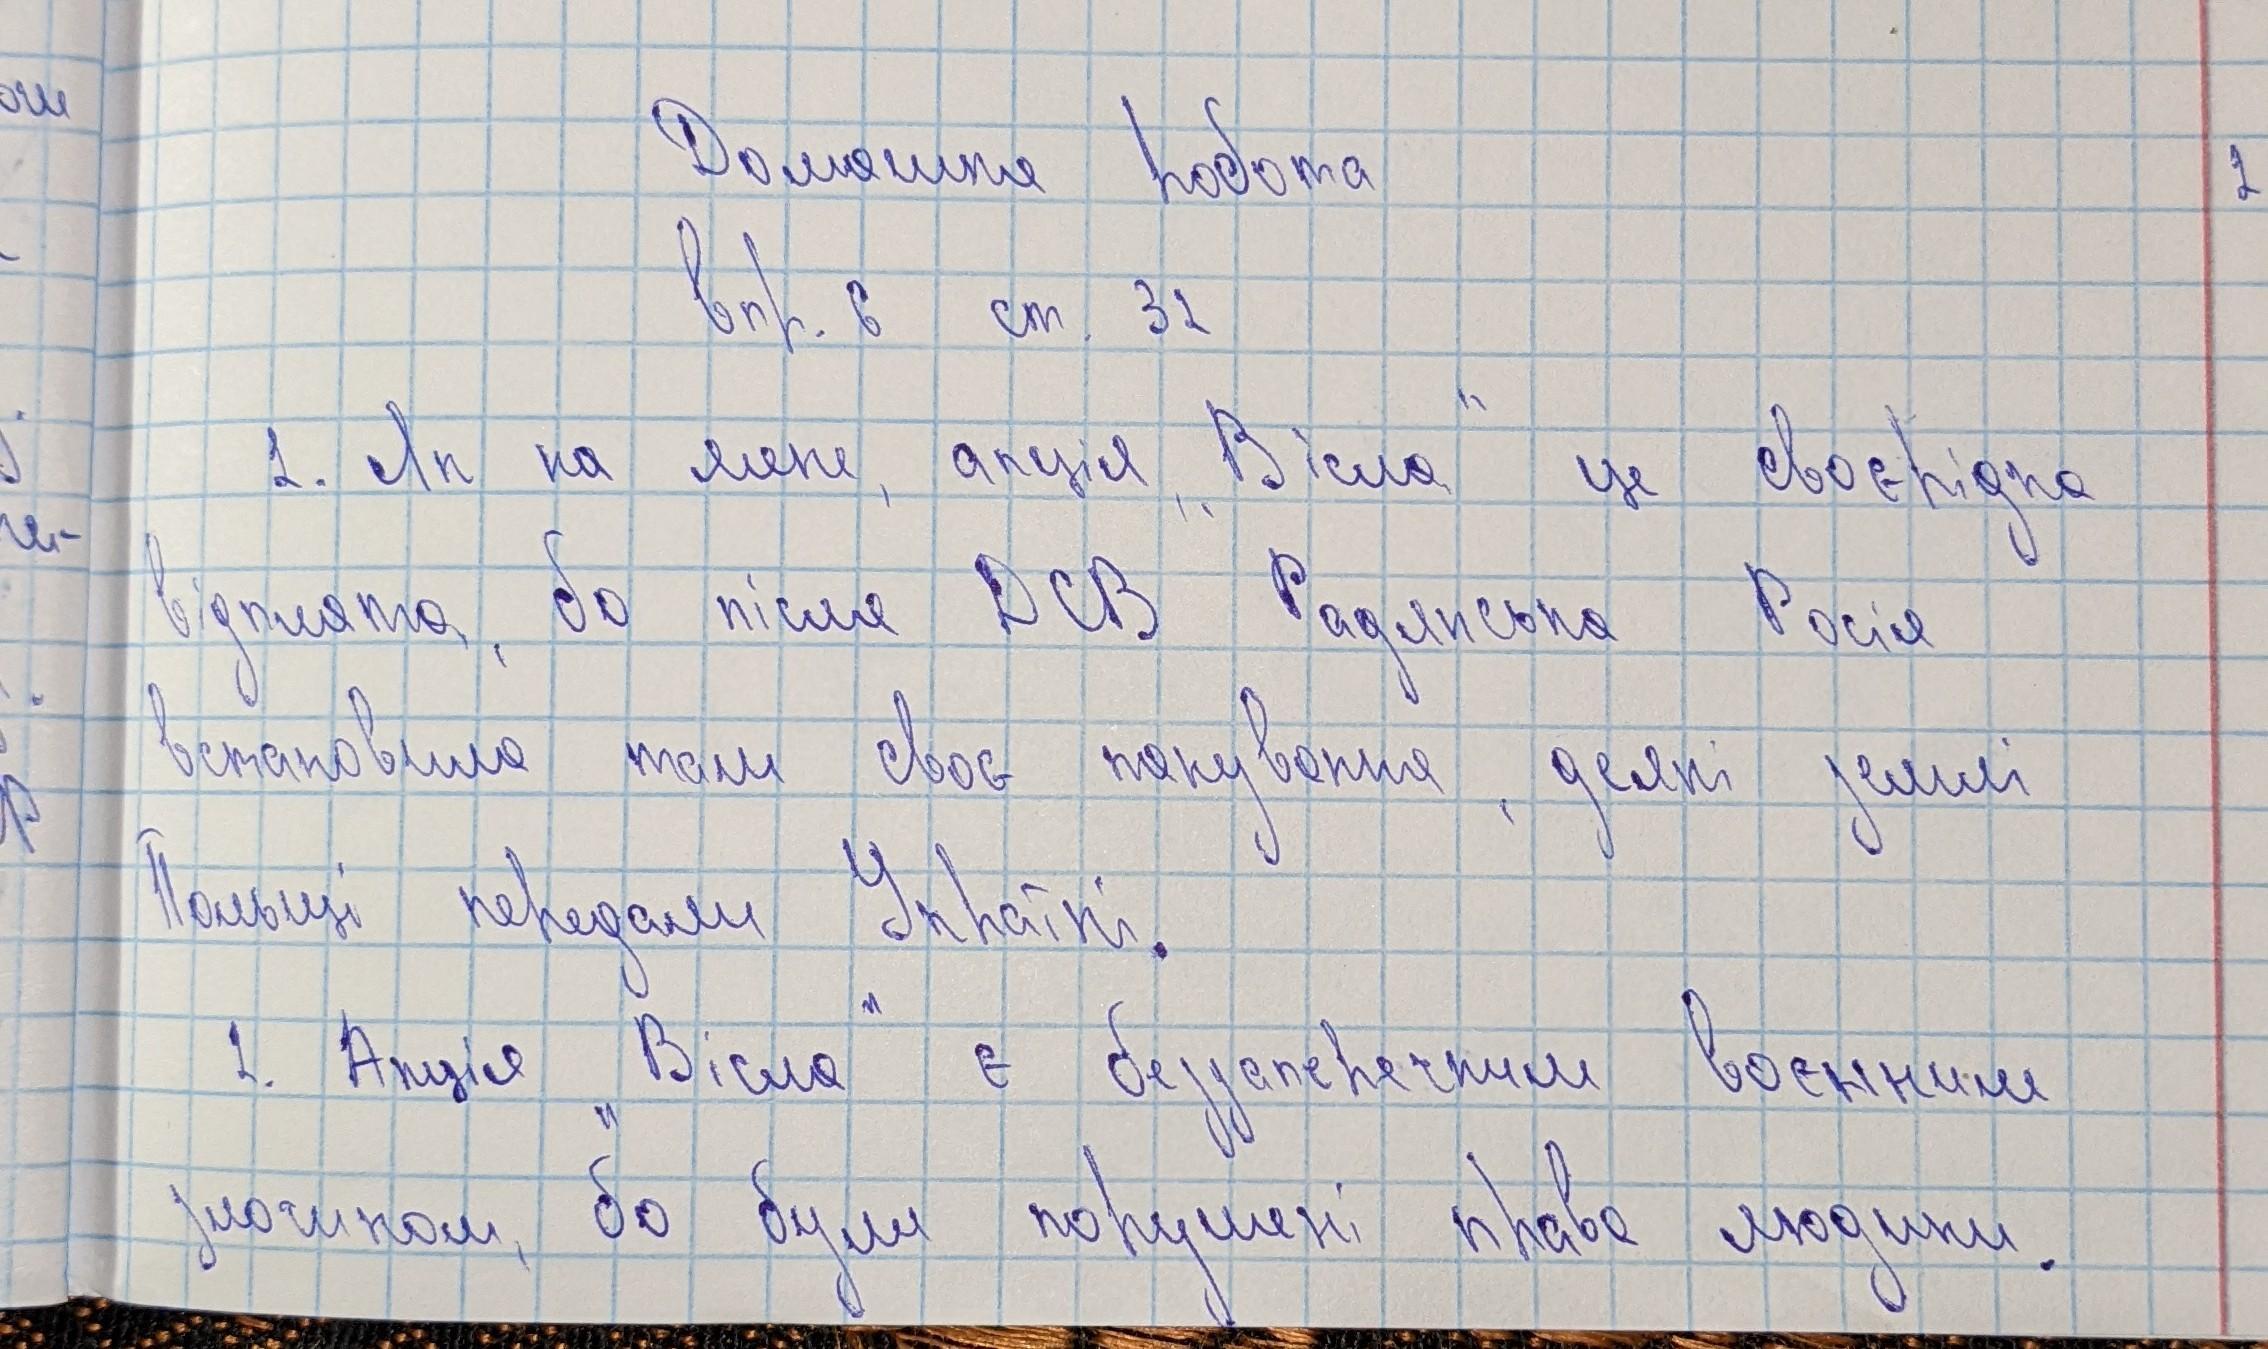 Домашня робота
впр. 6 ст. 31
1. Як на мене, акція „Вісла" це своєрідна
відплата, бо після ДСВ Радянська Росія
встановила там своє панування, деякі землі
Польщі передали Україні.
2. Акція „Вісла" є беззаперечним воєнним
злочином, бо були порушені права людини.